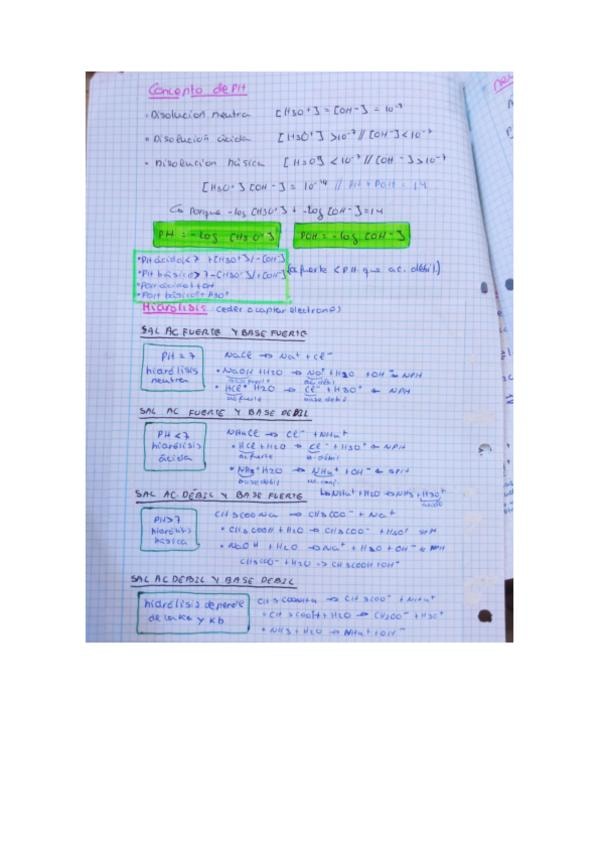 Concepto de pH
• Disolucion neutra [H3O+] = [OH-] = 10-7
• Disolución ácida [H3O+] > 10-7 // [OH-] < 10-7
• Disolucion básica [H3O] < 10-7 // [OH-] > 10-7
[H3O+] [OH-] = 10-14 // PH + POH = 14
Porque -log [H3O+] + -log [OH-] = 14
PH = -log [H3O+]
POH = -log [OH-]
• PH ácido < 7 +[H3O+] / -[OH-]
• PH básico > 7 -[H3O+] / +[OH-]
(a fuerte < PH que ac. débil)
• POH básico
Hidrólisis (ceder o captar electrones)
SAL AC FUERTE Y BASE FUERTE
PH = 7
hidrólisis
neutra
NaCl → Na+ + Cl-
• NaOH + H2O → Na+ + H2O + OH- NPH
ac. débil
• HCl + H2O → Cl- + H3O+ NPH
ac fuerte base débil
SAL AC FUERTE Y BASE DEBIL
PH < 7
hidrólisis
ácida
NH4Cl → Cl- + NH4+
• HCl + H2O → Cl- + H3O+ NPH
ac fuerte b. débil
• NH3 + H2O → NH4+ + OH- SPH
base débil ac. conj.
NH4+ + H2O → NH3 + H3O+
ácido
SAL AC. DÉBIL Y BASE FUERTE
PH > 7
hidrólisis
básica
CH3COONa → CH3COO- + Na+
• CH3COOH + H2O → CH3COO- + H3O+ SPH
• NaOH + H2O → Na+ + H2O + OH- NPH
CH3COO- + H2O → CH3COOH + OH-
SAL AC DEBIL Y BASE DEBIL
hidrólisis depende
de las Ka y Kb
CH3COONH4 → CH3COO- + NH4+
• CH3COOH + H2O → CH3COO- + H3O+
• NH3 + H2O → NH4+ + OH-